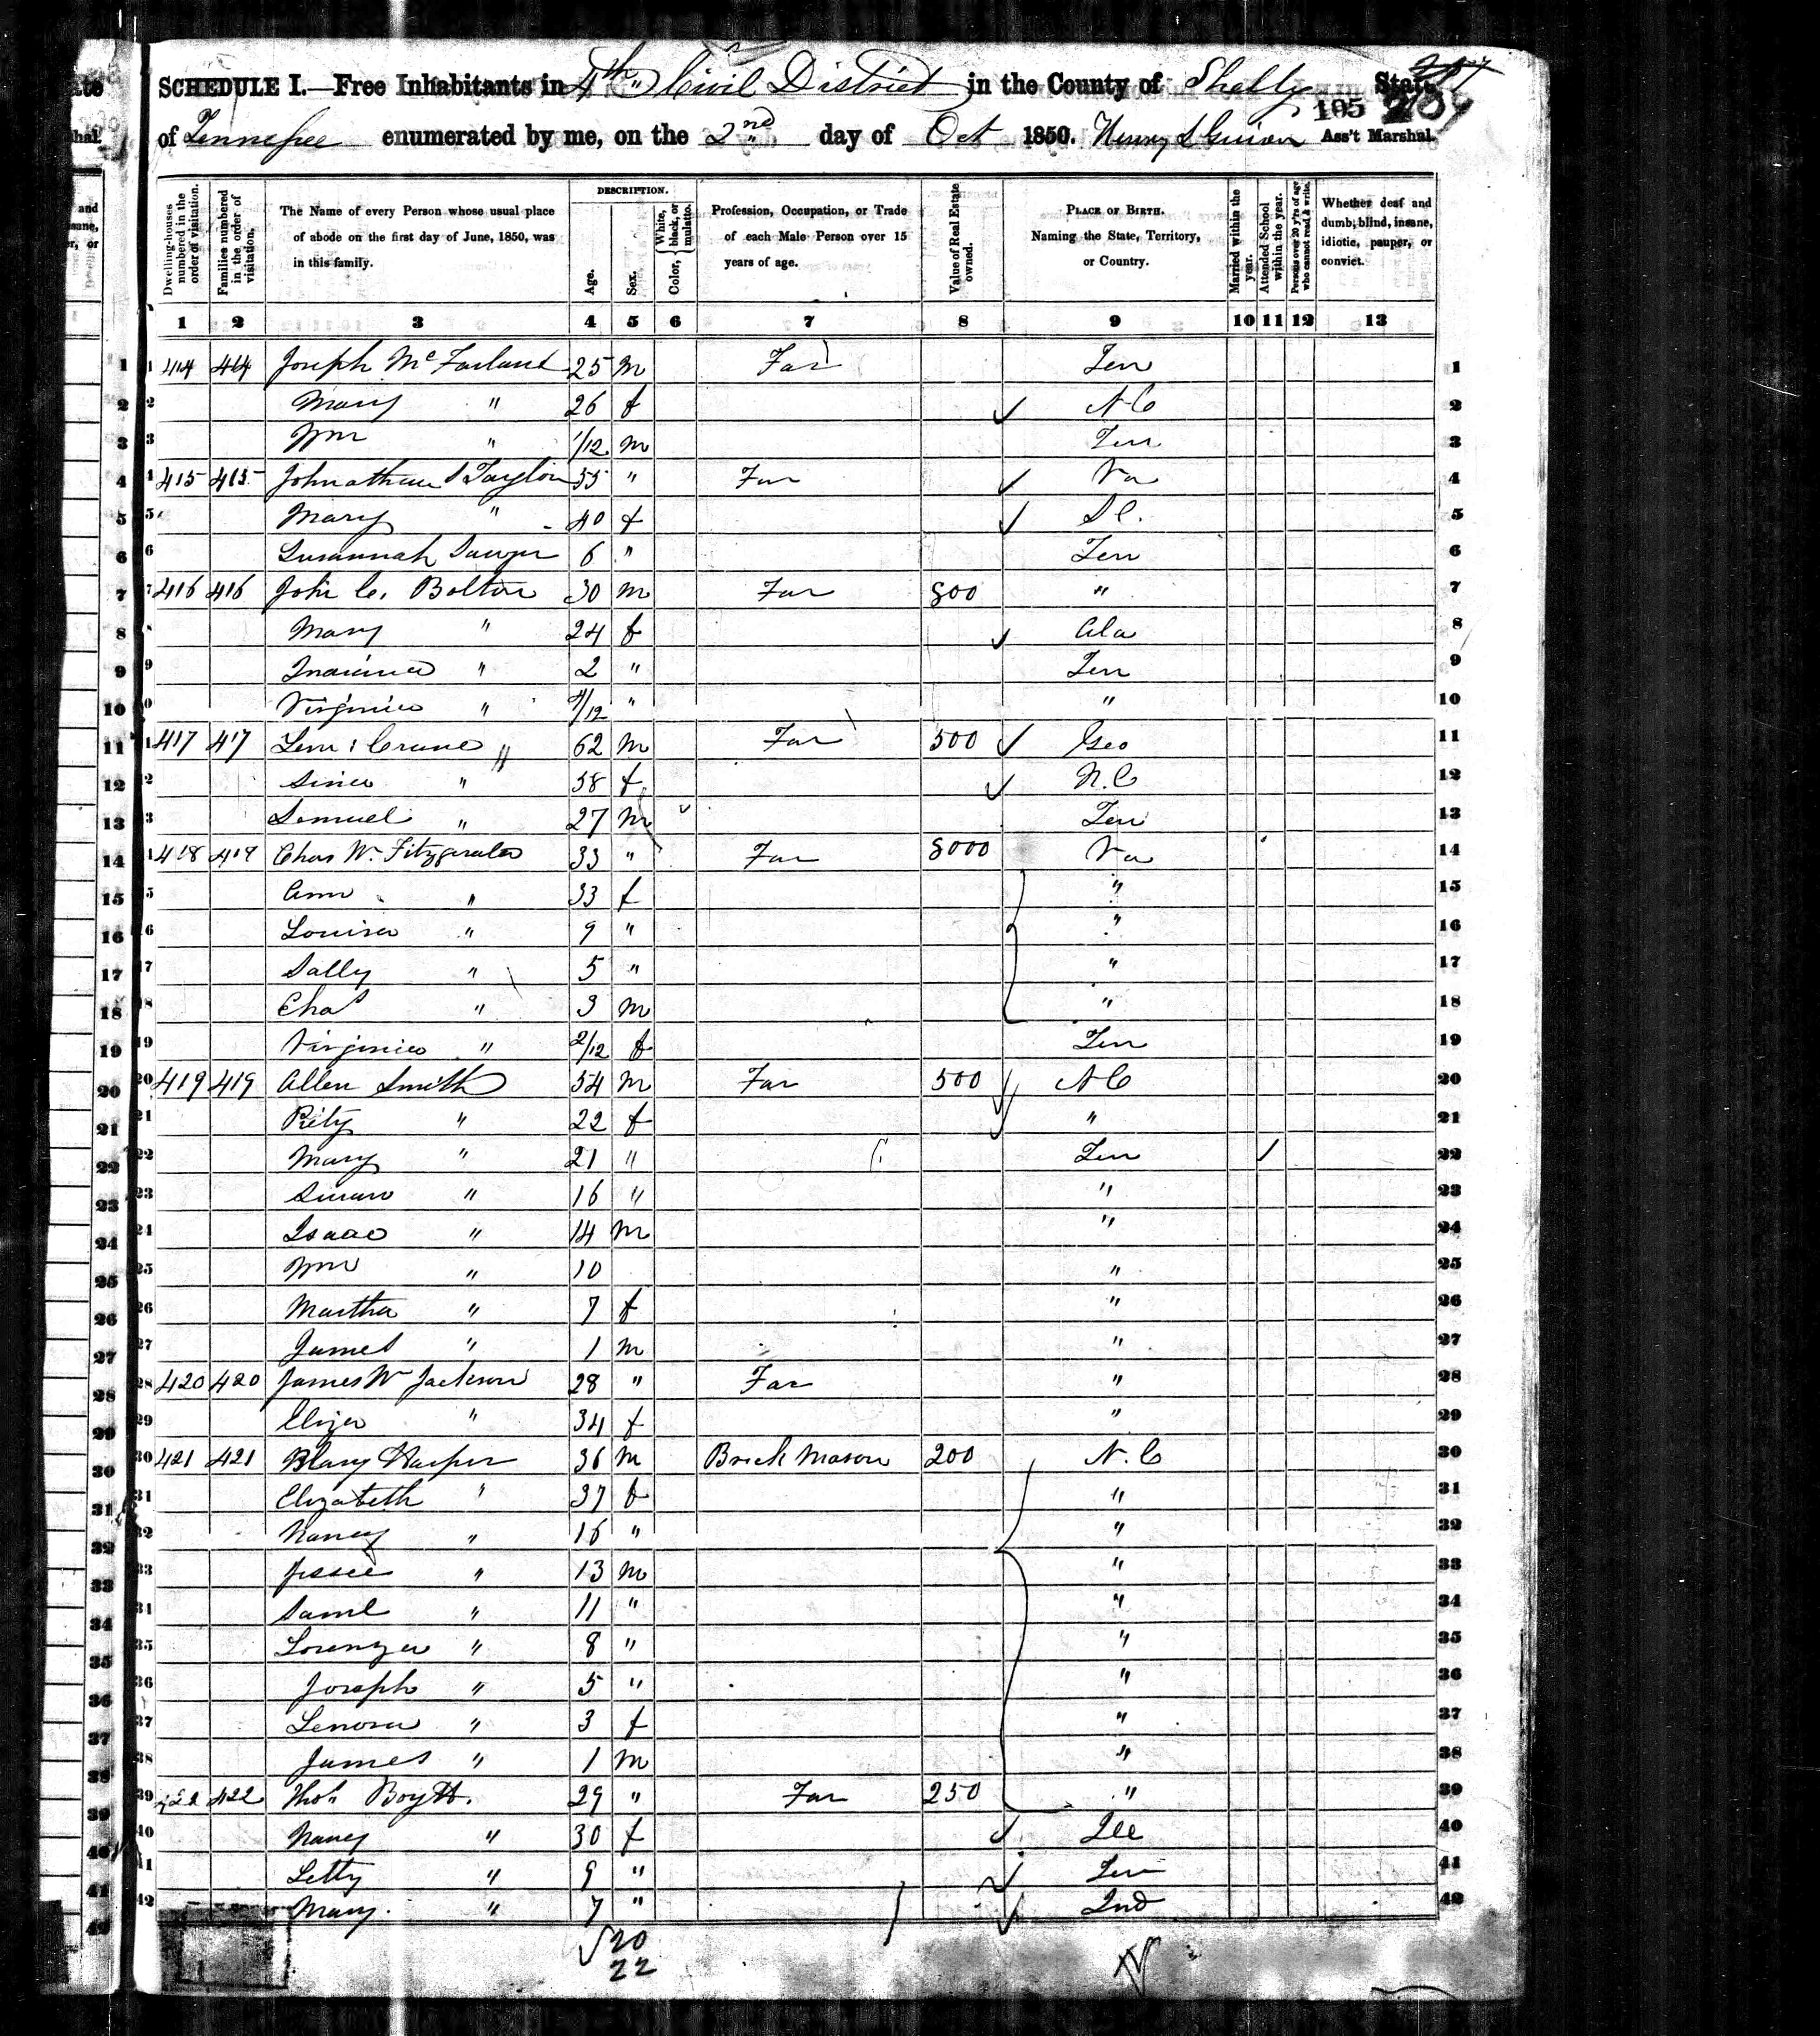 SCHEDULE I.—Free Inhabitants in 4th Civil District in the County of Shelby State
of Tennessee enumerated by me, on the 2nd day of Oct 1850. Henry L Guion Ass't Marshal.
105
Dwelling-houses numbered in the order of visitation.
Families numbered in the order of visitation.
The Name of every Person whose usual place of abode on the first day of June, 1850, was in this family.
DESCRIPTION.
Age.
Sex.
Color, White, black, or mulatto.
Profession, Occupation, or Trade of each Male Person over 15 years of age.
Value of Real Estate owned.
PLACE OF BIRTH. Naming the State, Territory, or Country.
Married within the year.
Attended School within the year.
Persons over 20 y'rs of age who cannot read & write.
Whether deaf and dumb, blind, insane, idiotic, pauper, or convict.
1 2 3 4 5 6 7 8 9 10 11 12 13
1 414 414 Joseph McFarland 25 m Far Ten 1
2 Mary " 26 f N C 2
3 Wm " 1/12 m Ten 3
4 415 415 Johnathan Taylor 55 " Far Va 4
5 Mary " 40 f S C. 5
6 Susannah Sawyer 6 " Ten 6
7 416 416 John C. Bolton 30 m Far 800 " 7
8 Mary " 24 f Ala 8
9 Indiana " 2 " Ten 9
10 Virginia " /12 " " 10
11 417 417 Crane 62 m Far 500 Geo 11
12 " 58 f N. C 12
13 Lemuel " 27 m Ten 13
14 418 418 Chas W. Fitzgerald 33 " Far 8000 Va 14
15 Ann " 33 f " 15
16 Louisa " 9 " " 16
17 Sally " 5 " " 17
18 Chas " 3 m " 18
19 Virginia " 2/12 f Ten 19
20 419 419 Allen Smith 54 m Far 500 N C 20
21 " 22 f " 21
22 Mary " 21 " Ten / 22
23 Susan " 16 " " 23
24 Isaac " 14 m " 24
25 Wm " 10 " 25
26 Martha " 7 f " 26
27 James " 1 m " 27
28 420 420 James W Jackson 28 " Far " 28
29 Eliza " 34 f " 29
30 421 421 Harper 36 m Brick Mason 200 N. C 30
31 Elizabeth " 37 f " 31
32 Nancy " 16 " " 32
33 Jessee " 13 m " 33
34 Saml " 11 " " 34
35 Lorenza " 8 " " 35
36 Joseph " 5 " " 36
37 Lenora " 3 f " 37
38 James " 1 m " 38
39 422 422 Thos Boytt. 29 " Far 250 " 39
40 Nancy " 30 f Ill 40
41 Letty " 9 " Ten 41
42 Mary " 7 " Ind 42
20
22